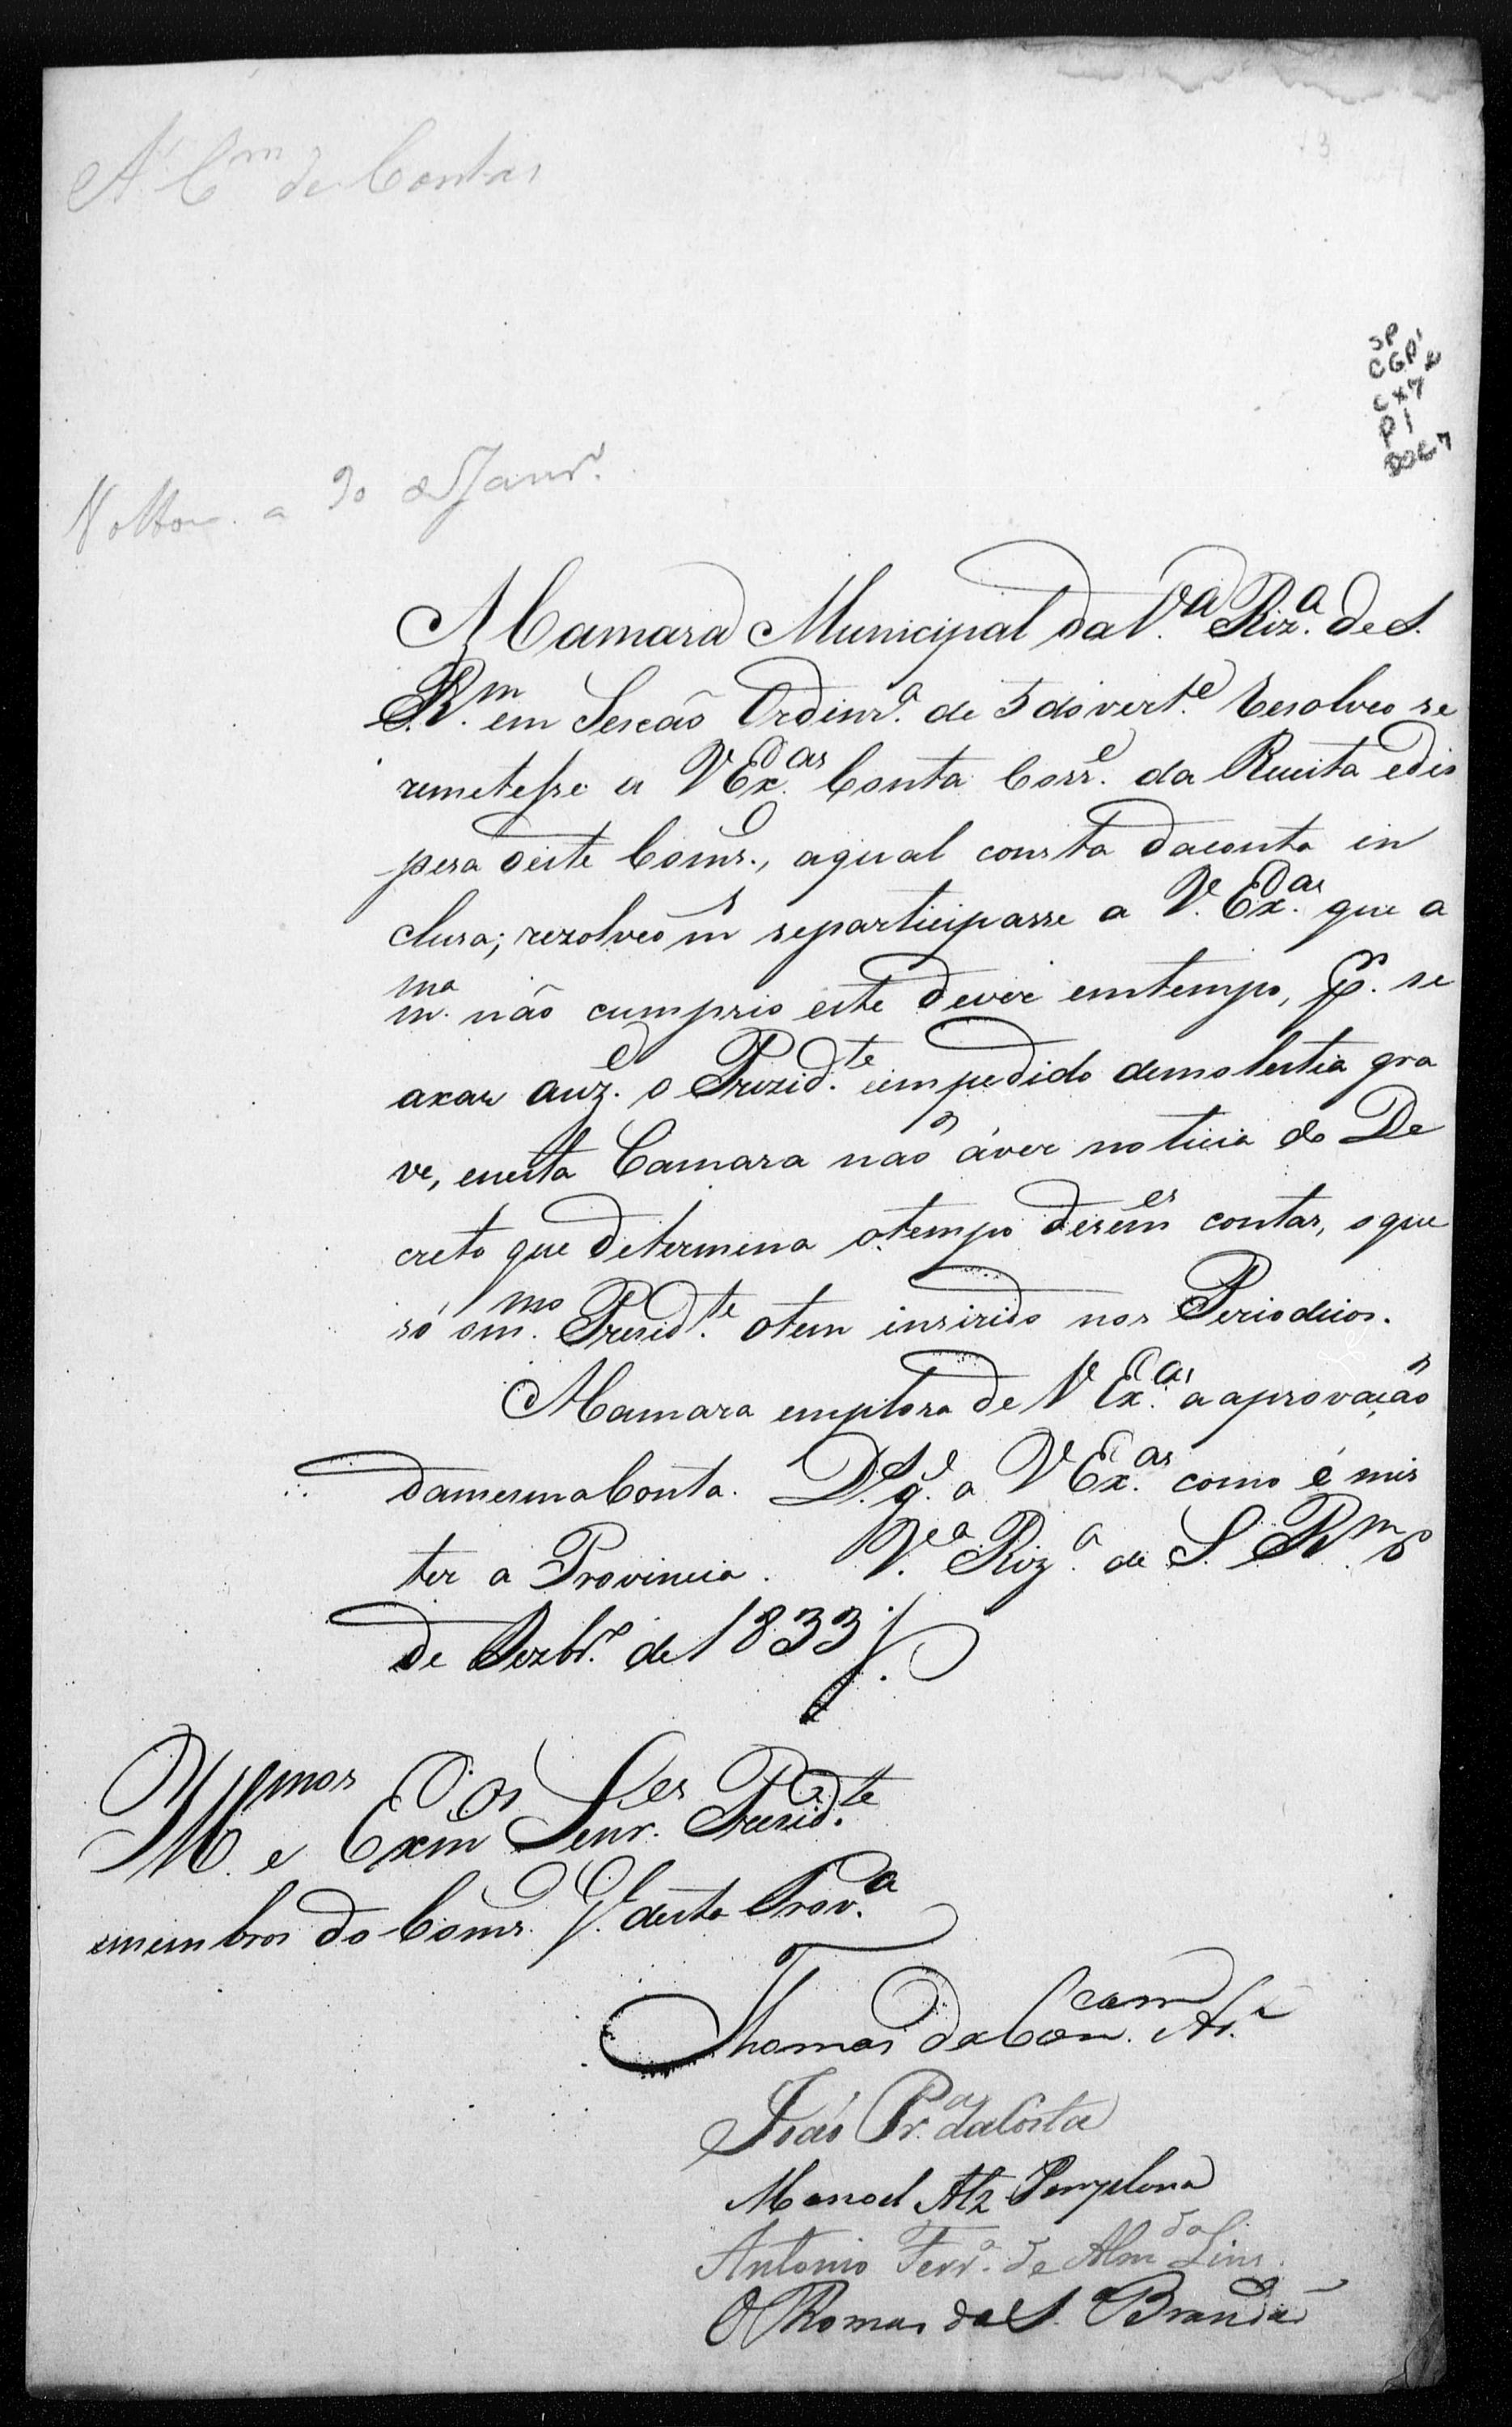 A' Cm. de Contas
SP
CGP1
CX7
P1
DOC 7
Voltou a 30 de Janr.o
A Camara Municipal da V.a Riz.a de S.
R.m em Sescão Ordinr.a de 5 do vert.e Resolveo se
remetesse a VEx.as Conta Corr.e da Receita e dis
pesa deste Coms., a qual consta da conta in
clusa; rezolveo m se participasse a V. Ex.as que a
m.ma não cumprio este dever em tempo, p.r se
axar auz.e o Prezid.te impedido de molestia gra
ve, e nesta Camara não áver noticia do De
creto que determina o tempo deserem contas, o que
só o m.mo Presid.te o tem insirido nos Periodicos.
A Camara emplora de VEx.as a aprovação
da mesma Conta. D.s g.e a VEx.as como é mis
ter a Provincia. V.a Riz.a de S. R.m 6
de Dezbr.o de 1833
Ill.mos e Exm.os Senr.es Presid.te
e membros do Coms. G. desta Prov.a
Thomas da Con.cam Ar.
João Pr.a da Costa
Manoel Alz Pamplona
Antonio Ferr.a de Alm.da Lins
Thomas da S. Brandão